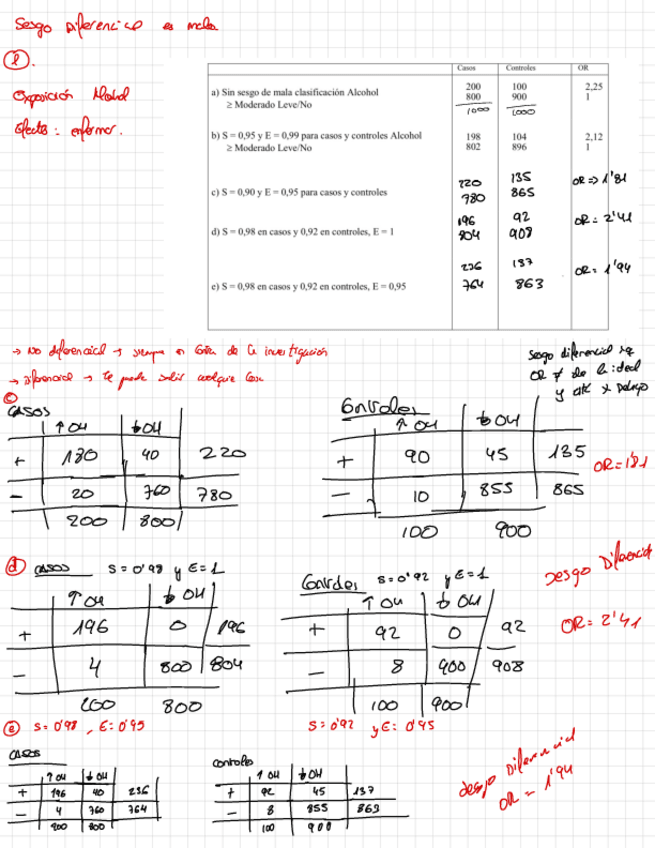 Sesgo Diferencial es mala
②.
Exposición Alcohol
Efecto: enfermar.
Casos Controles OR
a) Sin sesgo de mala clasificación Alcohol 200 100 2,25
≥ Moderado Leve/No 800 900 1
1000 1000
b) S = 0,95 y E = 0,99 para casos y controles Alcohol 198 104 2,12
≥ Moderado Leve/No 802 896 1
c) S = 0,90 y E = 0,95 para casos y controles 220 135 OR => 1'81
780 865
d) S = 0,98 en casos y 0,92 en controles, E = 1 196 92 OR = 2'41
804 908
e) S = 0,98 en casos y 0,92 en controles, E = 0,95 236 137 OR = 1'94
764 863
→ No diferencial → siempre en contra de la investigación
→ Diferencial → te puede salir cualquier cosa
sesgo diferencial
OR ≠ de la ideal
y
©
CASOS
↑OH ↓OH
+ 180 40 220
- 20 760 780
200 800
Controles
↑OH ↓OH
+ 90 45 135
- 10 855 865
100 900
OR=1'81
ⓓ CASOS S=0'98 y E=1
↑OH ↓OH
+ 196 0 196
- 4 800 804
200 800
Controles S=0'92 y E=1
↑OH ↓OH
+ 92 0 92
- 8 900 908
100 900
sesgo Diferencial
OR=2'41
ⓔ S=0'98, E:0'95
CASOS
↑OH ↓OH
+ 196 40 236
- 4 760 764
200 800
S=0'92 y E: 0'95
Controles
↑OH ↓OH
+ 92 45 137
- 8 855 863
100 900
sesgo Diferencial
OR = 1'94